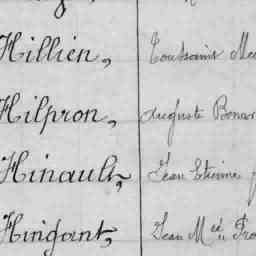 Hillien, Toussaint
Hilpron, Auguste Bonav
Hinault, Jean Etienne
Hingant, Jean Mié